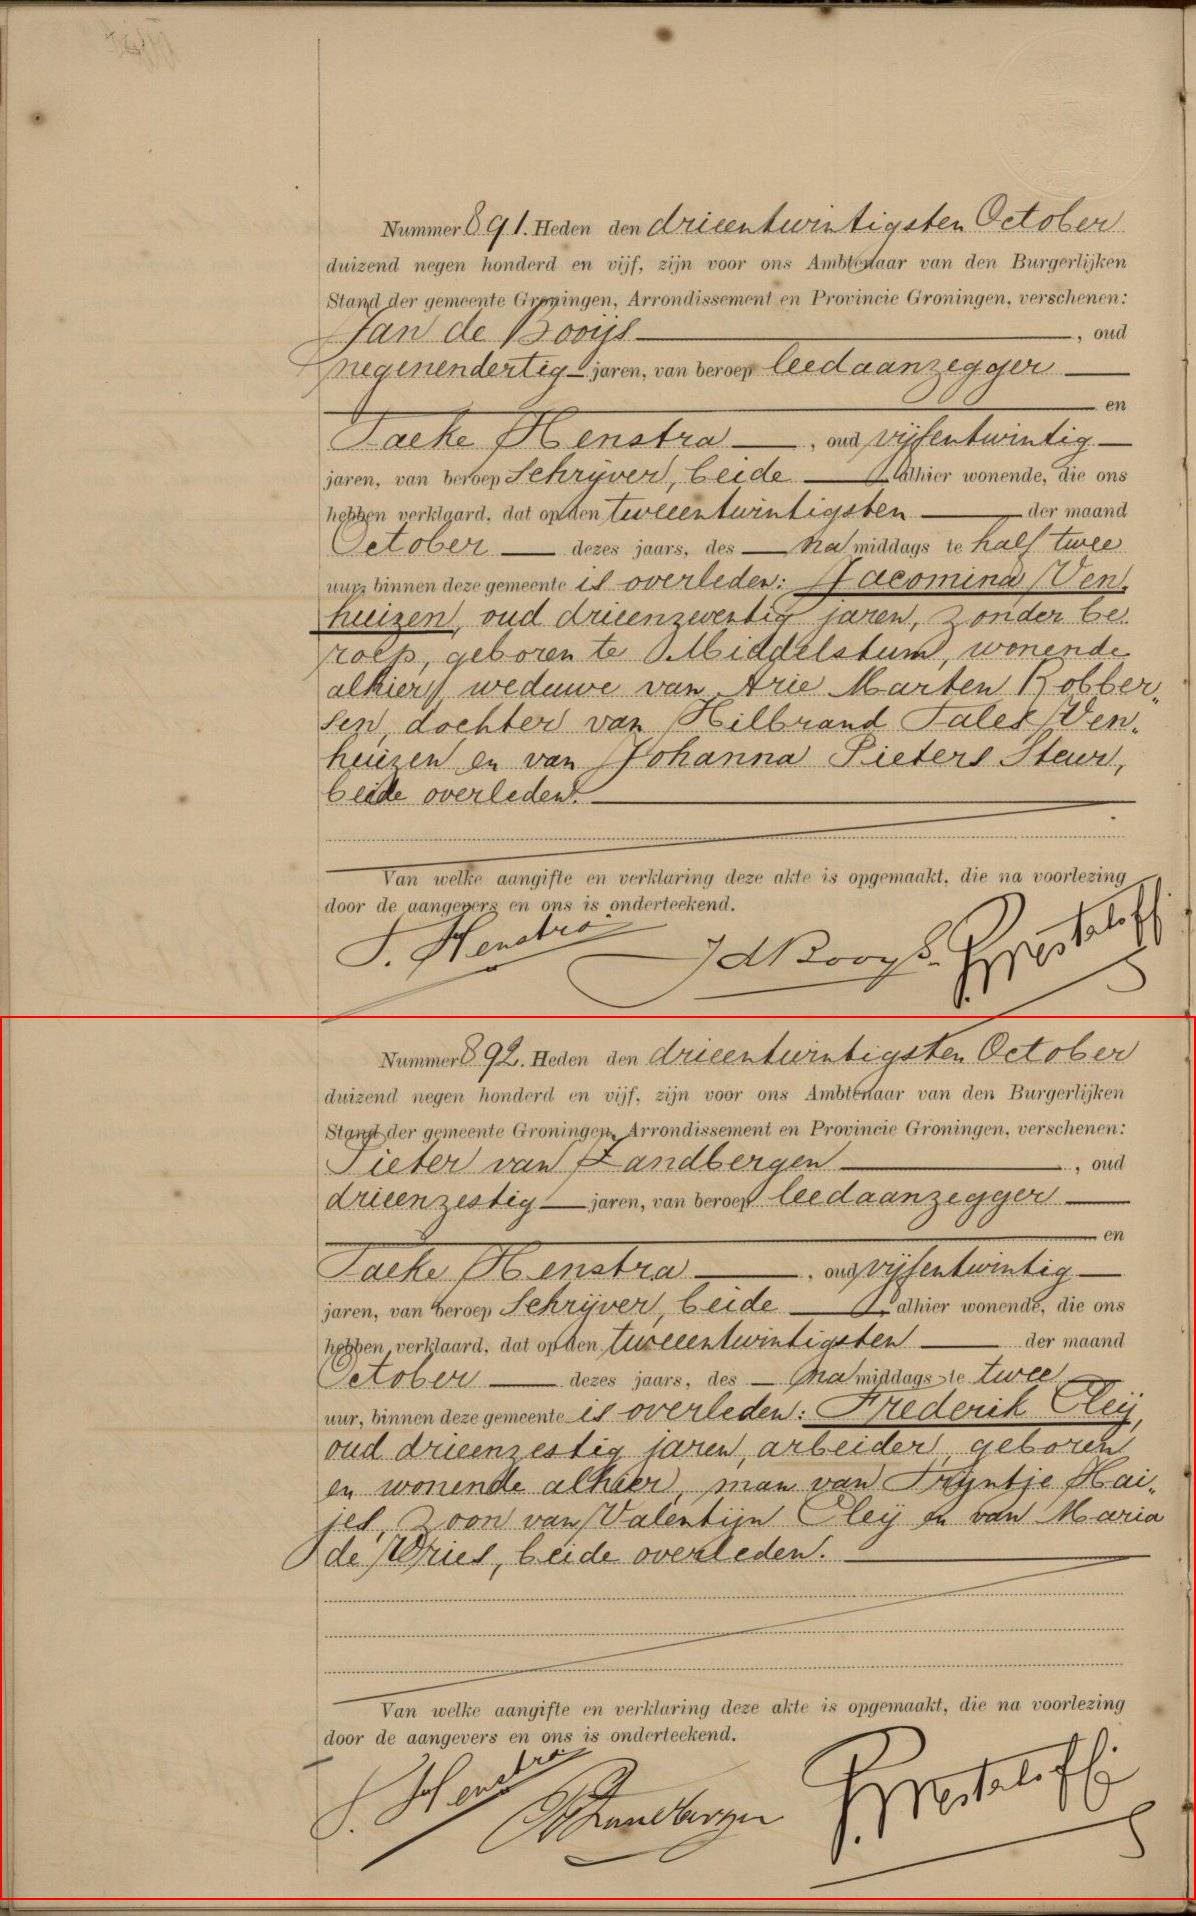 Nummer 891. Heden den drieentwintigsten October
duizend negen honderd en vijf, zijn voor ons Ambtenaar van den Burgerlijken
Stand der gemeente Groningen, Arrondissement en Provincie Groningen, verschenen:
Jan de Booijs , oud
negenendertig jaren, van beroep leedaanzegger
en
Taeke Henstra , oud vijfentwintig
jaren, van beroep Schrijver, beide alhier wonende, die ons
hebben verklaard, dat op den tweeentwintigsten der maand
October dezes jaars, des na middags te half twee
uur, binnen deze gemeente is overleden: Jacomina Ven-
huizen, oud drieenzeventig jaren, zonder be-
roep, geboren te Middelstum, wonende
alhier, weduwe van Arie Marten Robber-
sen, dochter van Hilbrand Tales Ven-
huizen en van Johanna Pieters Steur,
beide overleden.
Van welke aangifte en verklaring deze akte is opgemaakt, die na voorlezing
door de aangevers en ons is onderteekend.
T. Henstra JdBooys. P. Mestaloffi
Nummer 892. Heden den drieentwintigsten October
duizend negen honderd en vijf, zijn voor ons Ambtenaar van den Burgerlijken
Stand der gemeente Groningen, Arrondissement en Provincie Groningen, verschenen:
Pieter van Zandbergen , oud
drieenzestig jaren, van beroep leedaanzegger
en
Taeke Henstra , oud vijfentwintig
jaren, van beroep Schrijver, beide alhier wonende, die ons
hebben verklaard, dat op den tweeentwintigsten der maand
October dezes jaars, des na middags te twee
uur, binnen deze gemeente is overleden: Frederik Cleij,
oud drieenzestig jaren, arbeider, geboren
en wonende alhier, man van Trijntje Hai-
jes, zoon van Valentijn Cleij en van Maria
de Vries, beide overleden.
Van welke aangifte en verklaring deze akte is opgemaakt, die na voorlezing
door de aangevers en ons is onderteekend.
T. Henstra PvZandbergen P. Mestaloffi